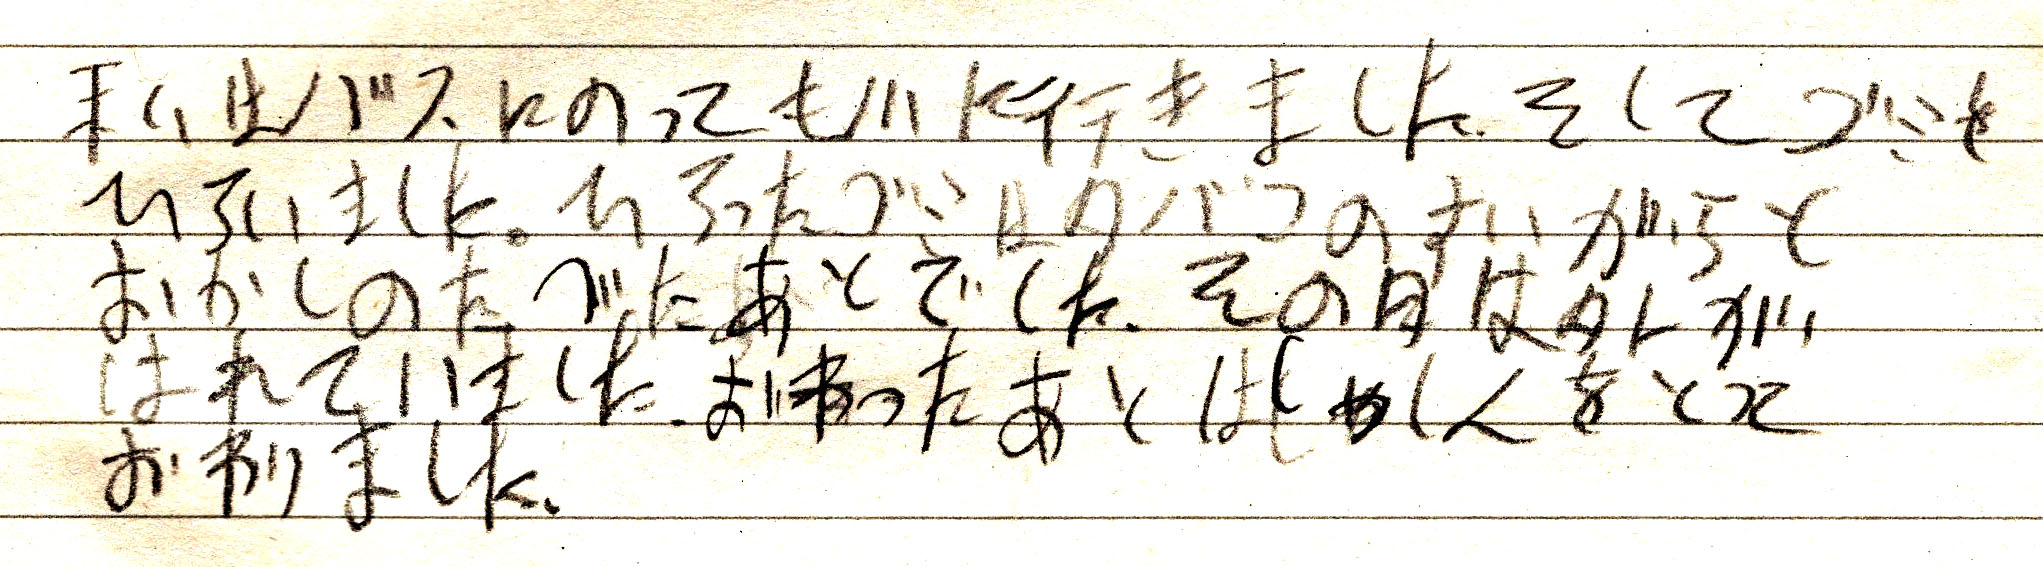 私はバスにのっても川に行きました。そしてごみを
ひろいました。ひろったごみはタバコのすいがらと
おかしのたべたあとでした。その日は外が
はれていました。おわったあとはしゃしんをとって
おわりました。